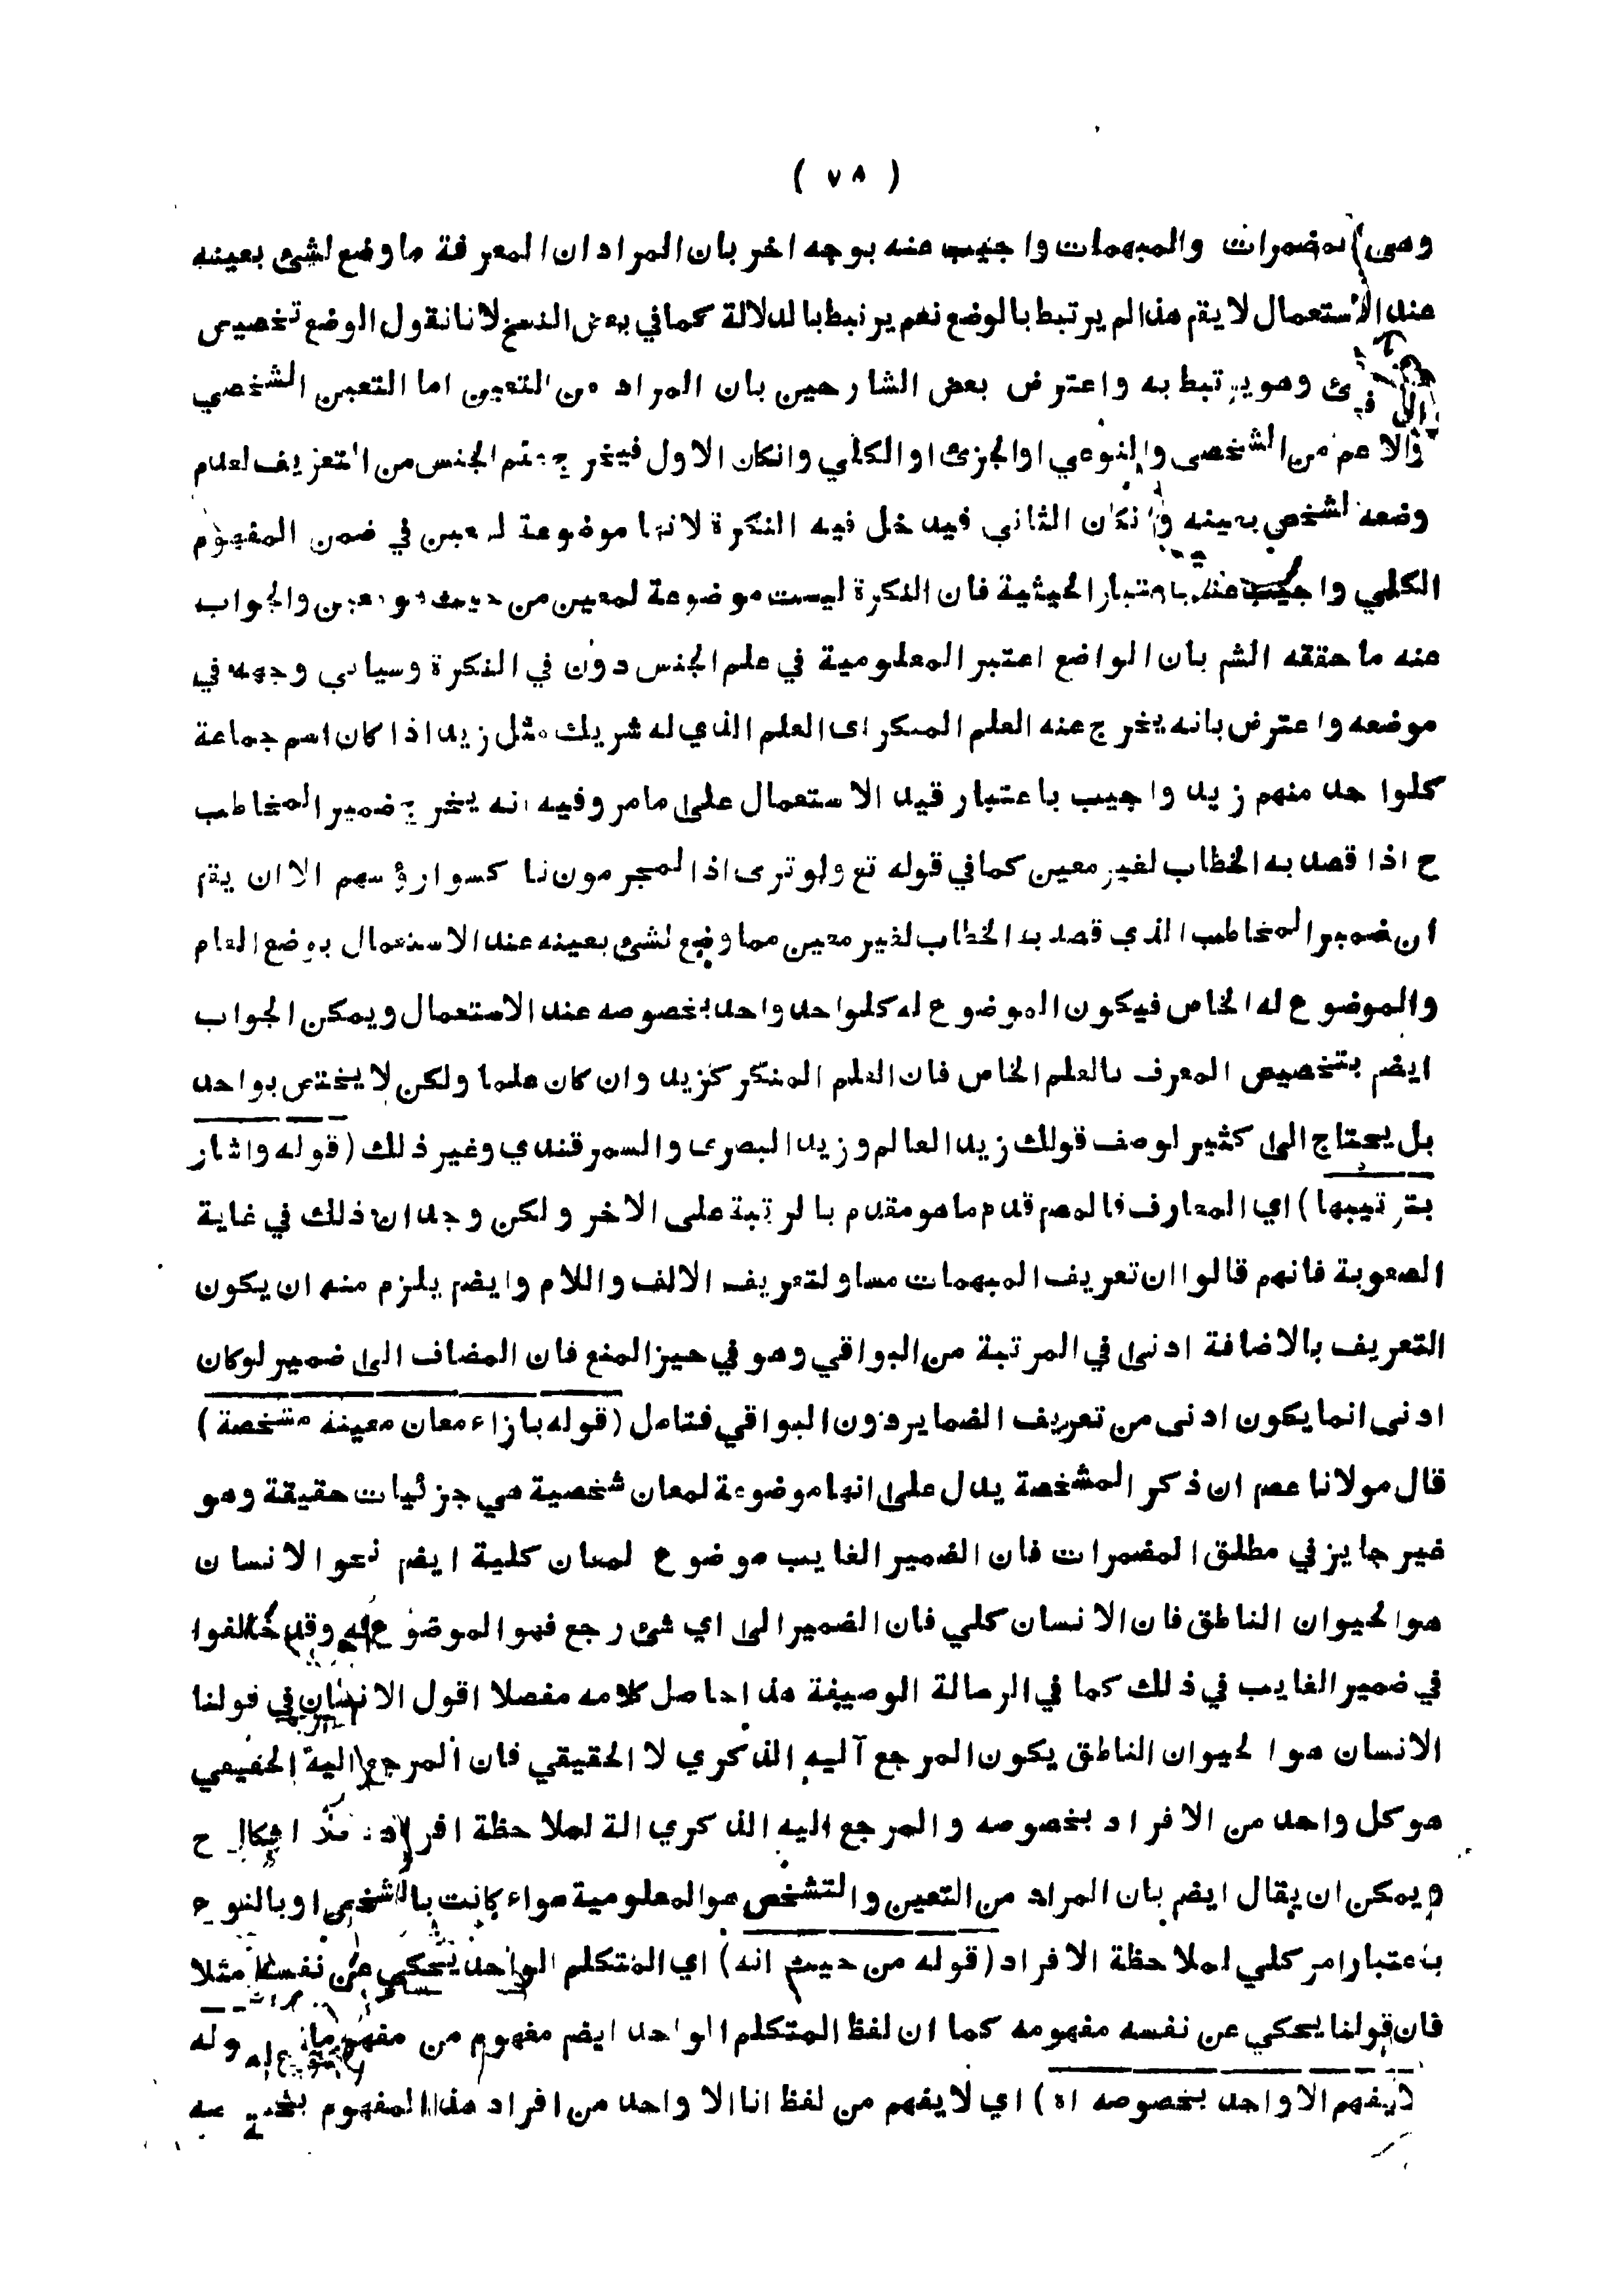 ( ٧٨ )
وهى المضمرات والمبهمات واجيب عنه بوجه اخر بان المراد ان المعرفة ما وضع لشئ بعينه
عند الاستعمال لا يقم هذا لم يرتبط بالوضع نعم يرتبط بالدلالة كما في بعض النسخ لانا نقول الوضع تخصيص
وهو يرتبط به واعترض بعض الشارحين بان المراد من التعين اما التعين الشخصي
والاعم من الشخصى والنوعي او الجزئ او الكلي وانكان الاول فيخرج علم الجنس من التعريف لعدم
وضعه لشخص بعينه وانكان الثاني فيدخل فيه النكرة لانها موضوعة لمعين في ضمن المفهوم
الكلي واجيب عنه باعتبار الحيثية فان النكرة ليست موضوعة لمعين من حيث هو معين والجواب
عنه ما حققه الشم بان الواضع اعتبر المعلومية في علم الجنس دون في النكرة وسياتي وجهه في
موضعه واعترض بانه يخرج عنه العلم المنكر اى العلم الذي له شريك مثل زيد اذا كان اسم جماعة
كلواحد منهم زيد واجيب باعتبار قيد الاستعمال على ما مر وفيه انه يخرج ضمير المخاطب
ح اذا قصد به الخطاب لغير معين كما في قوله تع ولو ترى اذ المجرمون ناكسوا رؤسهم الا ان يقم
ان ضمير المخاطب الذي قصد به الخطاب لغير معين مما وضع لشئ بعينه عند الاستعمال بوضع العام
والموضوع له الخاص فيكون الموضوع له كلواحد واحد بخصوصه عند الاستعمال ويمكن الجواب
ايضم بتخصيص المعرف بالعلم الخاص فان العلم المنكر كزيد وان كان علما ولكن لا يختص بواحد
بل يحتاج الى كثير لوصف قولك زيد العالم وزيد البصرى والسمرقندي وغير ذلك (قوله واشار
بترتيبها) اي المعارف فالمصم قدم ما هو مقدم بالرتبة على الاخر ولكن وجد ان ذلك في غاية
الصعوبة فانهم قالوا ان تعريف المبهمات مساو لتعريف الالف واللام وايضم يلزم منه ان يكون
التعريف بالاضافة ادنى في المرتبة من البواقي وهو في حيز المنع فان المضاف الى ضمير لوكان
ادنى انما يكون ادنى من تعريف الضماير دون البواقي فتامل (قوله بازاء معان معينة مشخصة)
قال مولانا عصم ان ذكر المشخصة يدل على انها موضوعة لمعان شخصية هي جزئيات حقيقة وهو
غير جايز في مطلق المضمرات فان الضمير الغايب موضوع لمعان كلية ايضم نحو الانسان
هو الحيوان الناطق فان الانسان كلي فان الضمير الى اي شئ رجع فهو الموضوع له وقد خالفوا
في ضمير الغايب في ذلك كما في الرسالة الوصيفة هذا حاصل كلامه مفصلا اقول الانسان في قولنا
الانسان هو الحيوان الناطق يكون المرجع آليه الذكري لا الحقيقي فان المرجع اليه الحقيقي
هو كل واحد من الافراد بخصوصه والمرجع اليه الذكري الة لملاحظة افراده فلا اشكال ح
ويمكن ان يقال ايضم بان المراد من التعين والتشخص هو المعلومية سواء كانت بالشخص او بالنوع
باعتبار امر كلي لملاحظة الافراد (قوله من حيث انه) اي المتكلم الواحد يحكي عن نفسه مثلا
فان قولنا يحكي عن نفسه مفهومه كما ان لفظ المتكلم الواحد ايضم مفهوم من مفهوم
لا يفهم الا واحد بخصوصه اه) اي لا يفهم من لفظ انا الا واحد من افراد هذا المفهوم